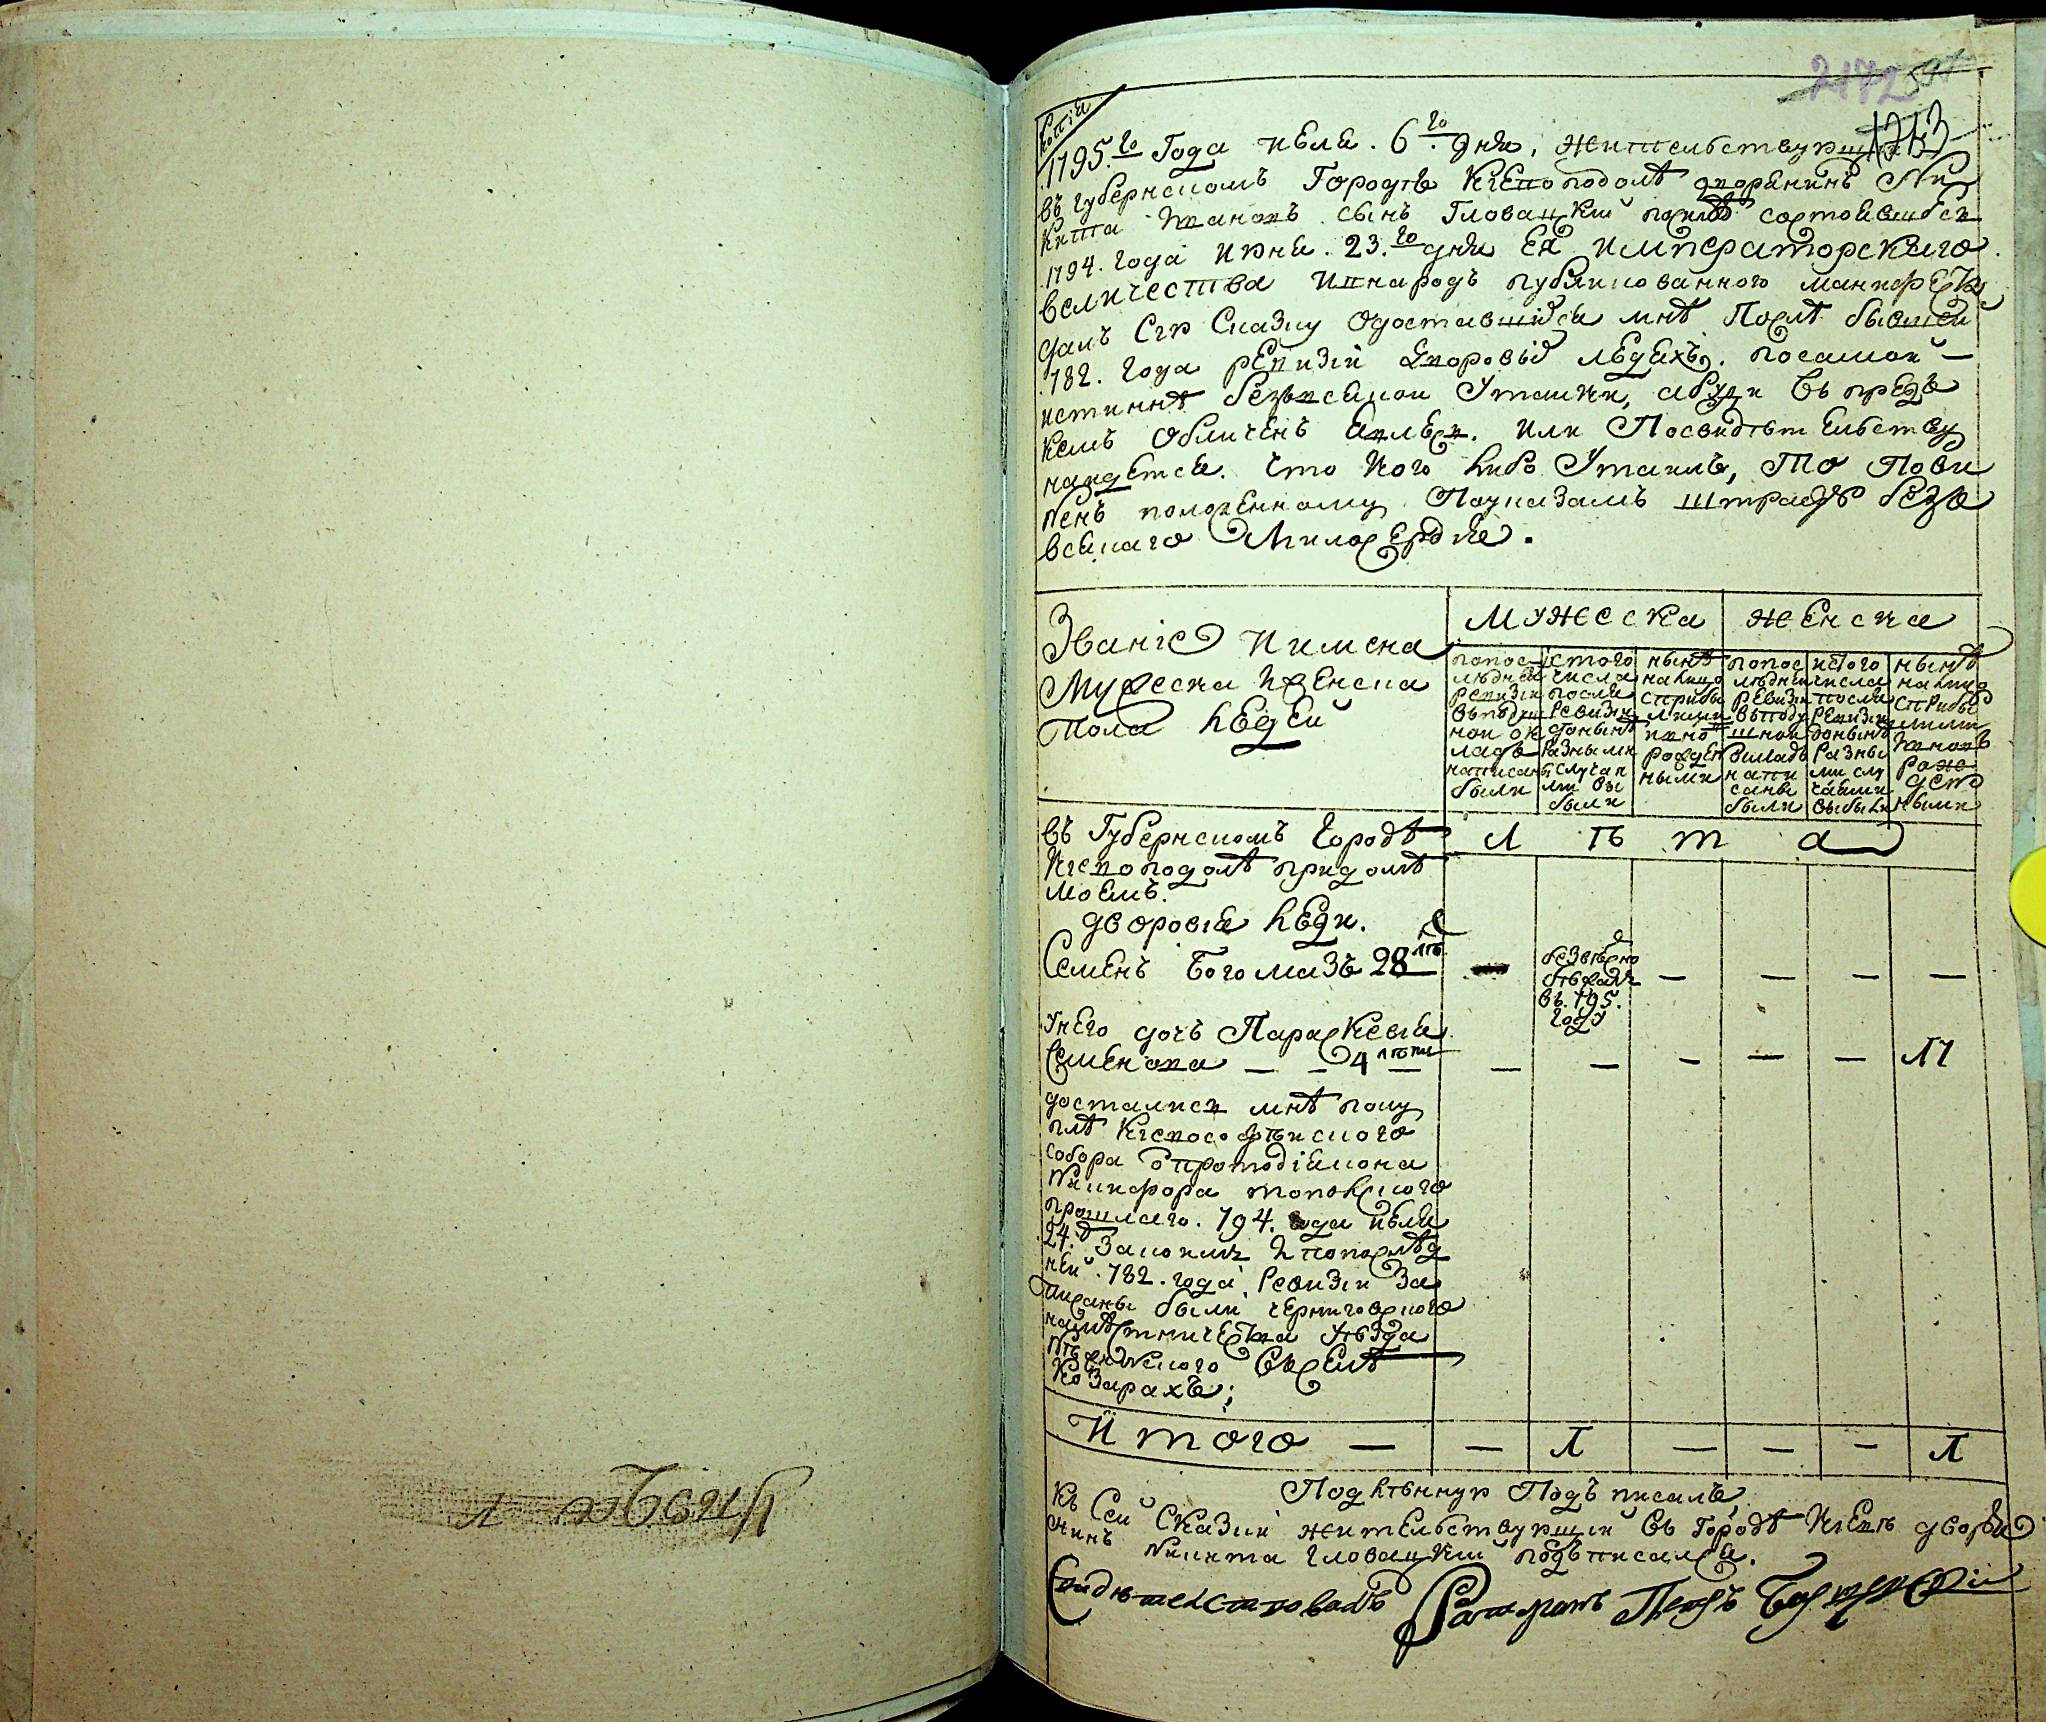 копія
1795.го Года июля. 6.го дня, жительствующій
въ губернскомъ Городѣ Киевоподолѣ дворянинъ Ни
кита Ивановъ сынъ Гловацкій посилѣ состоявшагося
1794. года июня. 23.го дня Ея императорскаго
величества ивнародъ публикованного манифеста
далъ Сію Сказку Одоставшихся мнѣ Послѣ бывшей
782. Года ревизіи дворовыхъ людяхъ. посамой
истиннѣ безвсякои Утаики, абуди въ предъ
кемъ обличенъ явлюся. или Посвидѣтельству
найдется. что кого либо Утаилъ, то пови
ненъ положенному Поуказамъ штрафу безо
всякаго Милосердия.
Званіе иимена
Мужеска иженска
пола людей
Мужеска
женска
попос
лѣдней
ревизіи
вподуш
ной ок
ладъ
написаны
были
истого
числа
после
ревизіи
донынѣ
разными
случая
ми вы
были
нынѣ
налицо
сприбы
лыми
ивно
рожден
ными
попос
лѣднеи
ревизіи
вподу
шнои
окладъ
напи
саны
были
истого
числа
после
ревизіи
донынѣ
разны
ми слу
чаями
выбыли
нынѣ
налицо
сприбы
лыми
ивновь
рож
ден
ными
въ Губернскомъ городѣ
Киевоподолѣ придомѣ
моемъ.
лѣта
дворовіе люди.
Семенъ Богомазъ 28 лѣ
безвѣсно
бѣжалъ
въ. 795.
году
унего дочь Параскевія
Семенова 4 лѣтъ
1
достались мнѣ поку
пкѣ Киевософѣискаго
собора отпротодіякона
Никифора
прошлаго. 794. года июля
24. Законим ипопослѣд
ней. 782. года, Ревизіи За
писаны были черниговского
намѣстничества уѣзда
Нѣжинского Въселѣ
Козарахъ;
Итого 1 1
Подлѣнную Подъписалъ,
Къ Сей Сказки жительствующій въ Городѣ Киевѣ дворя
нинъ Никита Гловацкий подъписался.
Свидетелствовалъ Ратманъ Петръ